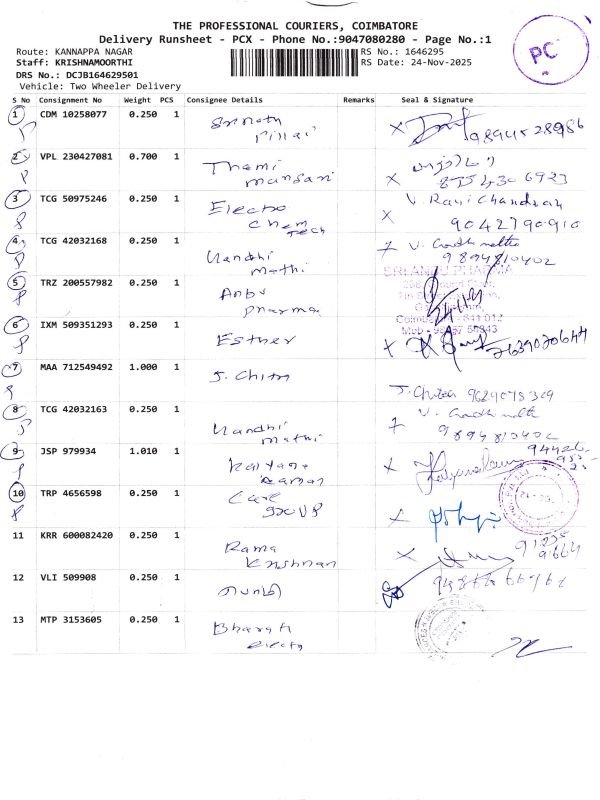 THE PROFESSIONAL COURIERS, COIMBATORE
Delivery Runsheet - PCX - Phone No.:9047080280 - Page No.:1
PC
Route: KANNAPPA NAGAR
RS No.: 1646295
Staff: KRISHNAMOORTHI
RS Date: 24-Nov-2025
DRS No.: DCJB164629501
Vehicle: Two Wheeler Delivery
S No Consignment No Weight PCS Consignee Details Remarks Seal & Signature
1 CDM 10258077 0.250 1 Srinath
Pillai
X 9894528986
2 VPL 230427081 0.700 1 Thami
mansari
X 875430 6923
3 TCG 50975246 0.250 1 Electro
chem
Tech
V. Ravi Chandran
X 9042790910
4 TCG 42032168 0.250 1 Nandhi
mathi
9894810402
5 TRZ 200557982 0.250 1 Anbu
pharma
SRI ANBU PHARMA
6 IXM 509351293 0.250 1 Esther
X 7639020644
7 MAA 712549492 1.000 1 J. Chitra
J. Chitra 9629078329
8 TCG 42032163 0.250 1 Nandhi
mathi
9894810402
9 JSP 979934 1.010 1 Kalyana
Raman
X Kalyanaraman
10 TRP 4656598 0.250 1 Care
group
X
11 KRR 600082420 0.250 1 Rama
Krishnan
X
12 VLI 509908 0.250 1
13 MTP 3153605 0.250 1 Bharati
electro